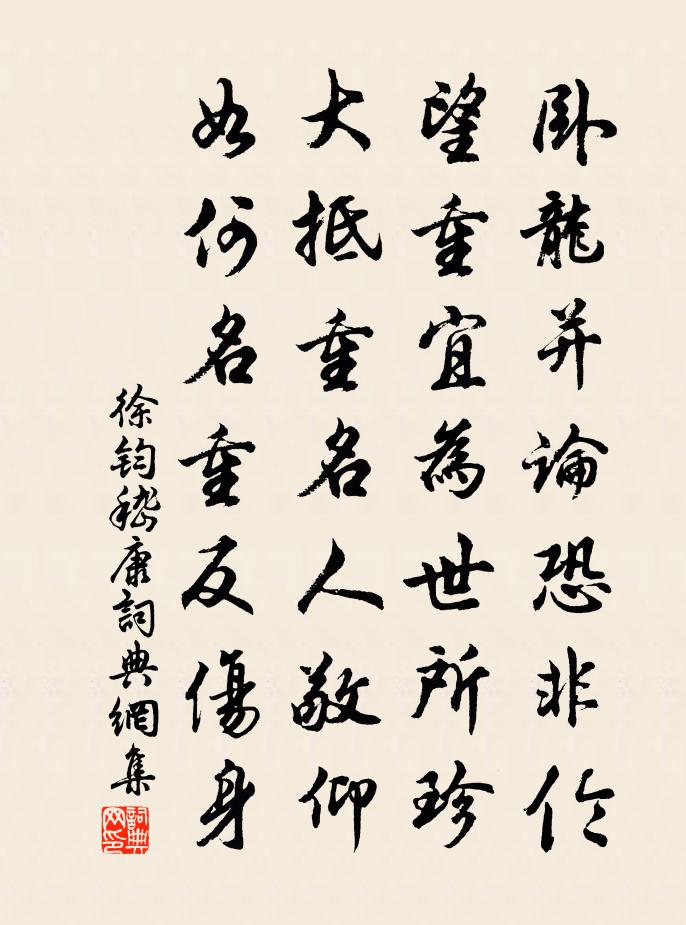 卧龍并論恐非伦
望重宜為世所珍
大抵重名人敬仰
如何名重反傷身
徐钧嵇康詞典網集
詞典网印